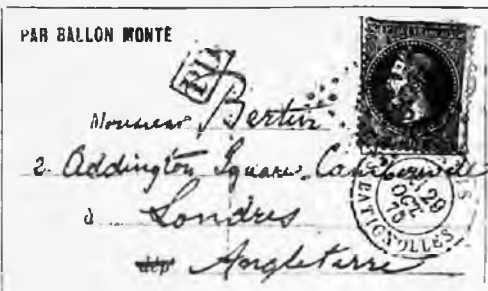 PAR BALLON MONTÉ
PD
Monsieur Bertin
2 Addington Square Camberwell
à Londres
dép^t Angleterre
PARIS BATIGNOLLES
29
OCT.
70